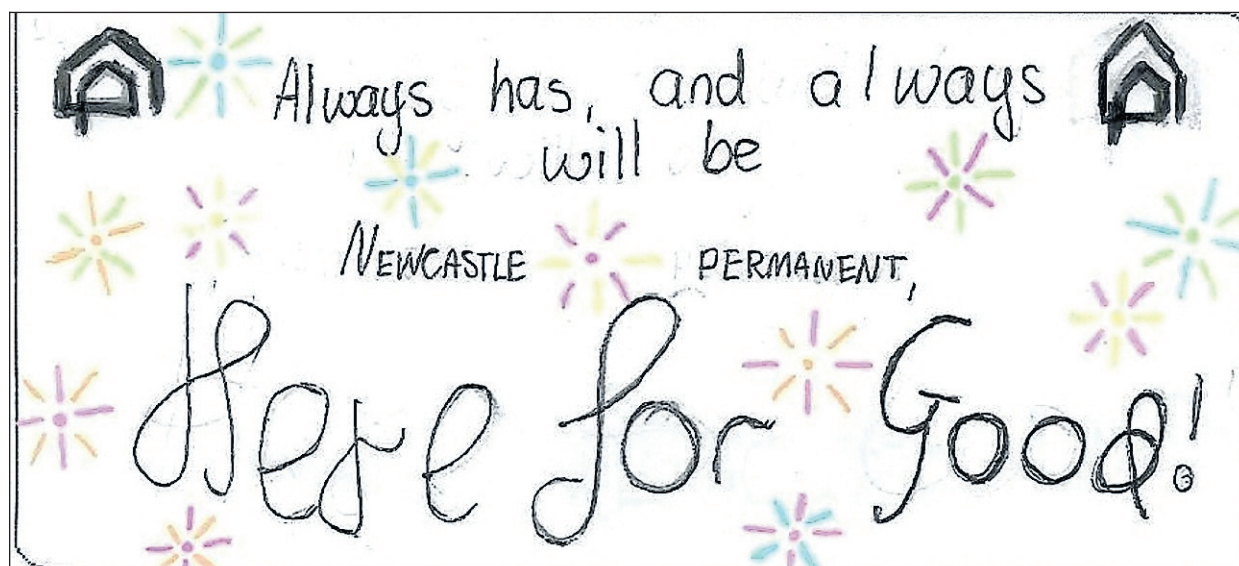 Always has, and always
will be
NEWCASTLE PERMANENT,
Here for Good!